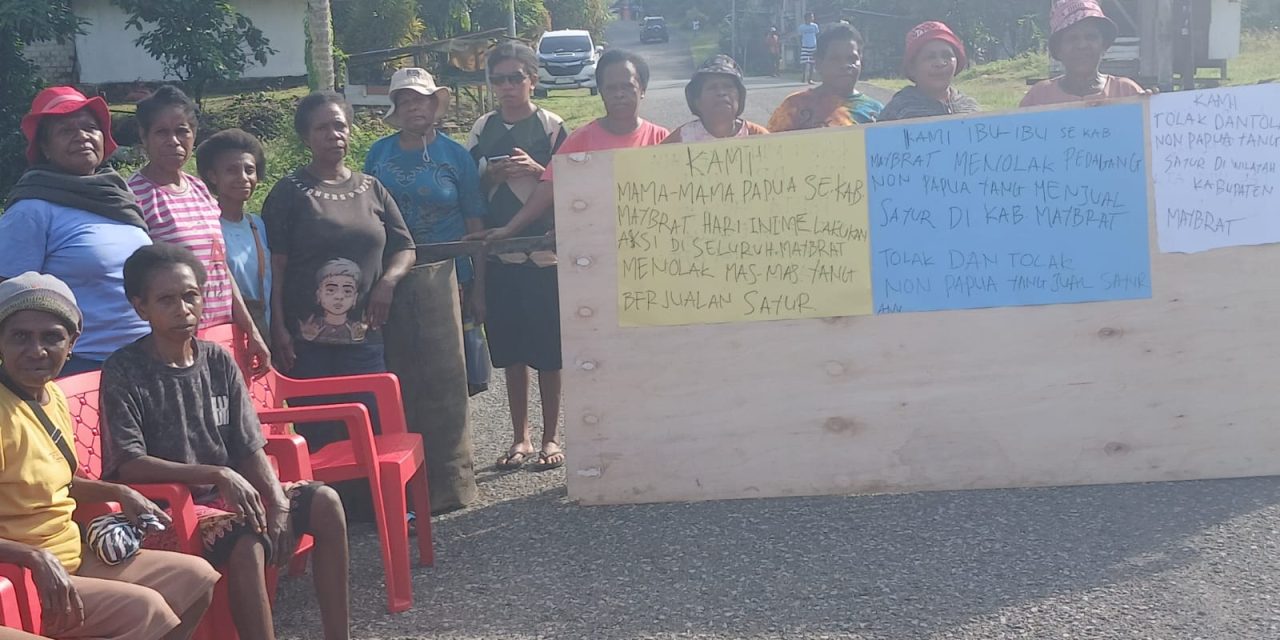 KAMI
MAMA-MAMA PAPUA SE KAB
MAYBRAT HARI INI ME LAKUKAN
AKSI DI SELURUH MAYBRAT
MENOLAK MAS-MAS YANG
BERJUALAN SAYUR
KAMI IBU-IBU SE KAB
MAYBRAT MENOLAK PEDAGANG
NON PAPUA YANG MENJUAL
SAYUR DI KAB MAYBRAT
TOLAK DAN TOLAK
NON PAPUA YANG JUAL SAYUR
KAMI
TOLAK DAN TOLAK
NON PAPUA YANG
SAYUR DI WILAYAH
KABUPATEN
MAYBRAT